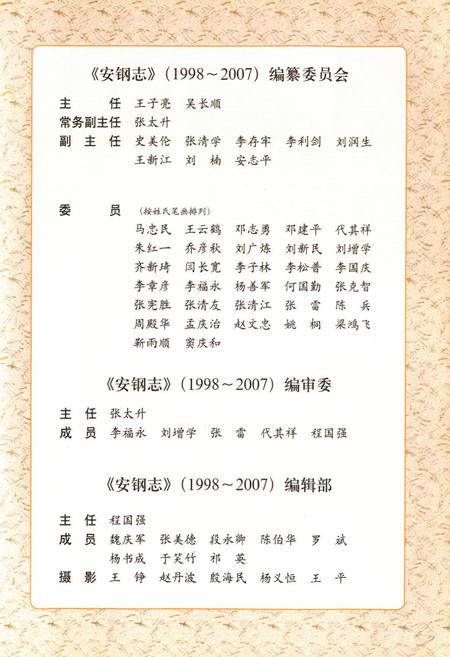 《安钢志》（1998～2007）编纂委员会
主　　任　王子亮　吴长顺
常务副主任　张太升
副　主　任　史美伦　张清学　李存牢　李利剑　刘润生
王新江　刘　楠　安志平
委　　员　（按姓氏笔画排列）
马忠民　王云鹤　邓志勇　邓建平　代其祥
朱红一　乔彦秋　刘广炼　刘新民　刘增学
齐新琦　闫长宽　李子林　李松普　李国庆
李章彦　李福永　杨善军　何国勤　张克智
张宪胜　张清友　张清江　张　雷　陈　兵
周殿华　孟庆治　赵文忠　姚　桐　梁鸿飞
靳雨顺　窦庆和
《安钢志》（1998～2007）编审委
主　任　张太升
成　员　李福永　刘增学　张　雷　代其祥　程国强
《安钢志》（1998～2007）编辑部
主　任　程国强
成　员　魏庆军　张美德　段永卿　陈伯华　罗　斌
杨书成　于笑竹　祁　英
摄　影　王　铮　赵丹波　殷海民　杨义恒　王　平